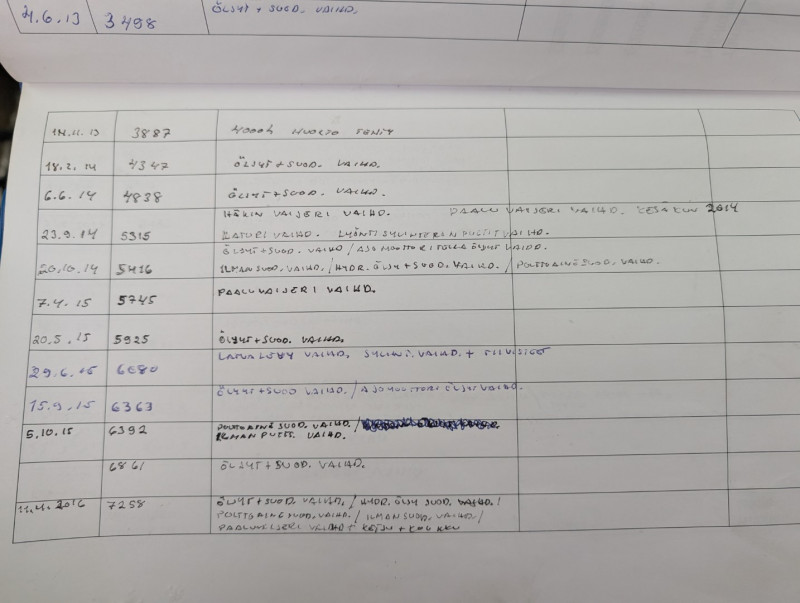 4.6.13 3498 ÖLJYT + SUOD. VAIHD.
14.11.13 3887 4000h HUOLTO TEHTY
18.2.14 4347 ÖLJYT+SUOD. VAIHD.
6.6.14 4838 ÖLJYT+SUOD. VAIHD.
HÄKIN VAIJERI VAIHD. PAALUVAIJERI VAIHD. KESÄKUU 2014
23.9.14 5315 LATURI VAIHD. LYÖNTISYLINTERIN PULTIT VAIHD.
ÖLJYT+SUOD. VAIHD / AJOMOOTTORI ÖLJYT VAIHD.
20.10.14 5416 ILMANSUOD. VAIHD. / HYDR. ÖLJY+SUOD. VAIHD. / POLTTOAINE SUOD. VAIHD.
7.4.15 5745 PAALUVAIJERI VAIHD.
20.5.15 5925 ÖLJYT+SUOD. VAIHD.
29.6.15 VAIHD. SYLINT. VAIHD. + TIIVISTEET
15.9.15 6363 ÖLJYT+SUOD VAIHD. / AJOMOOTTORI ÖLJYT VAIHD.
5.10.15 6392 POLTTOAINE SUOD. VAIHD. /
ILMAN VAIHD.
6861 ÖLJYT+SUOD. VAIHD.
11.4.2016 7258 ÖLJYT+SUOD. VAIHD. / HYDR. ÖLJY SUOD. VAIHD. /
POLTTOAINE SUOD. VAIHD. / ILMANSUOD. VAIHD. /
PAALUVEIJERI VAIHD + KETJU + KOUKKU